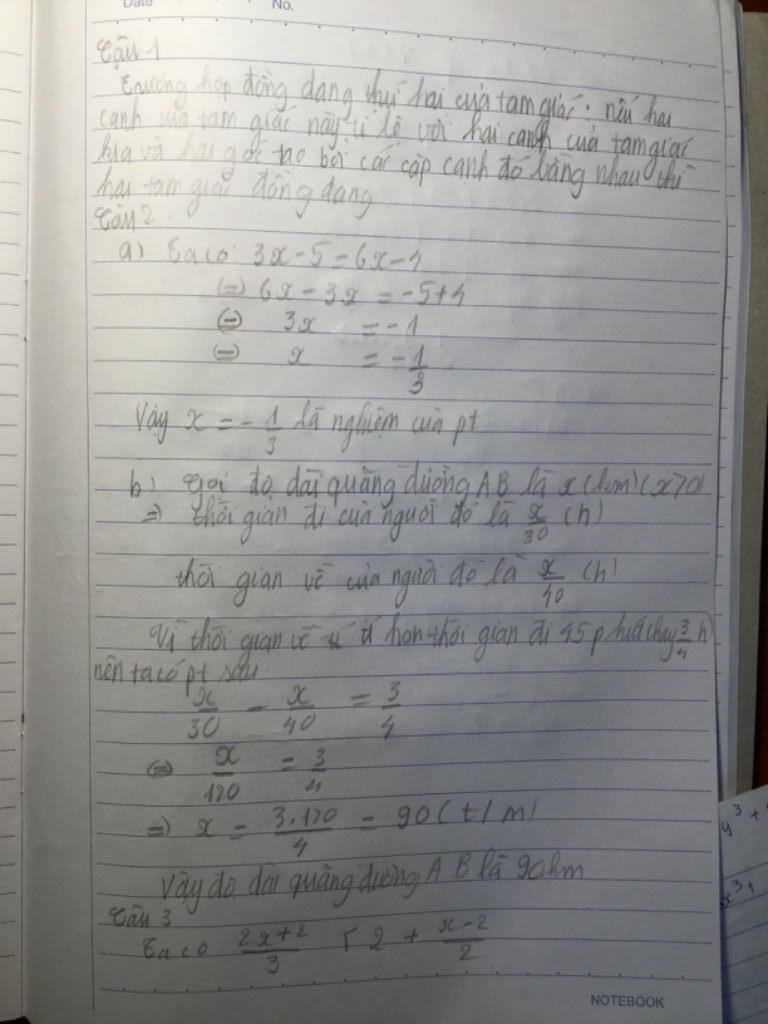 Date No.
Câu 1
Trường hợp đồng dạng thứ hai của tam giác: nếu hai
cạnh của tam giác này tỉ lệ với hai cạnh của tam giác
kia và hai góc tạo bởi các cặp cạnh đó bằng nhau thì
hai tam giác đồng dạng
Câu 2
a) Ta có 3x - 5 = 6x - 4
(=) 6x - 3x = -5 + 4
(=) 3x = -1
(=) x = -1/3
Vậy x = -1/3 là nghiệm của pt
b) Gọi độ dài quãng đường AB là x (km) (x>0)
=) thời gian đi của người đó là x/30 (h)
thời gian về của người đó là x/40 (h)
Vì thời gian về ít hơn thời gian đi 45 phút hay 3/4 h
nên ta có pt sau
x/30 - x/40 = 3/4
(=) x/120 = 3/4
=) x = 3.120/4 = 90 (t/m)
Vậy độ dài quãng đường AB là 90km
Câu 3
Ta có 2x+2/3 < 2 + x-2/2
y³ +
x³ +
NOTEBOOK